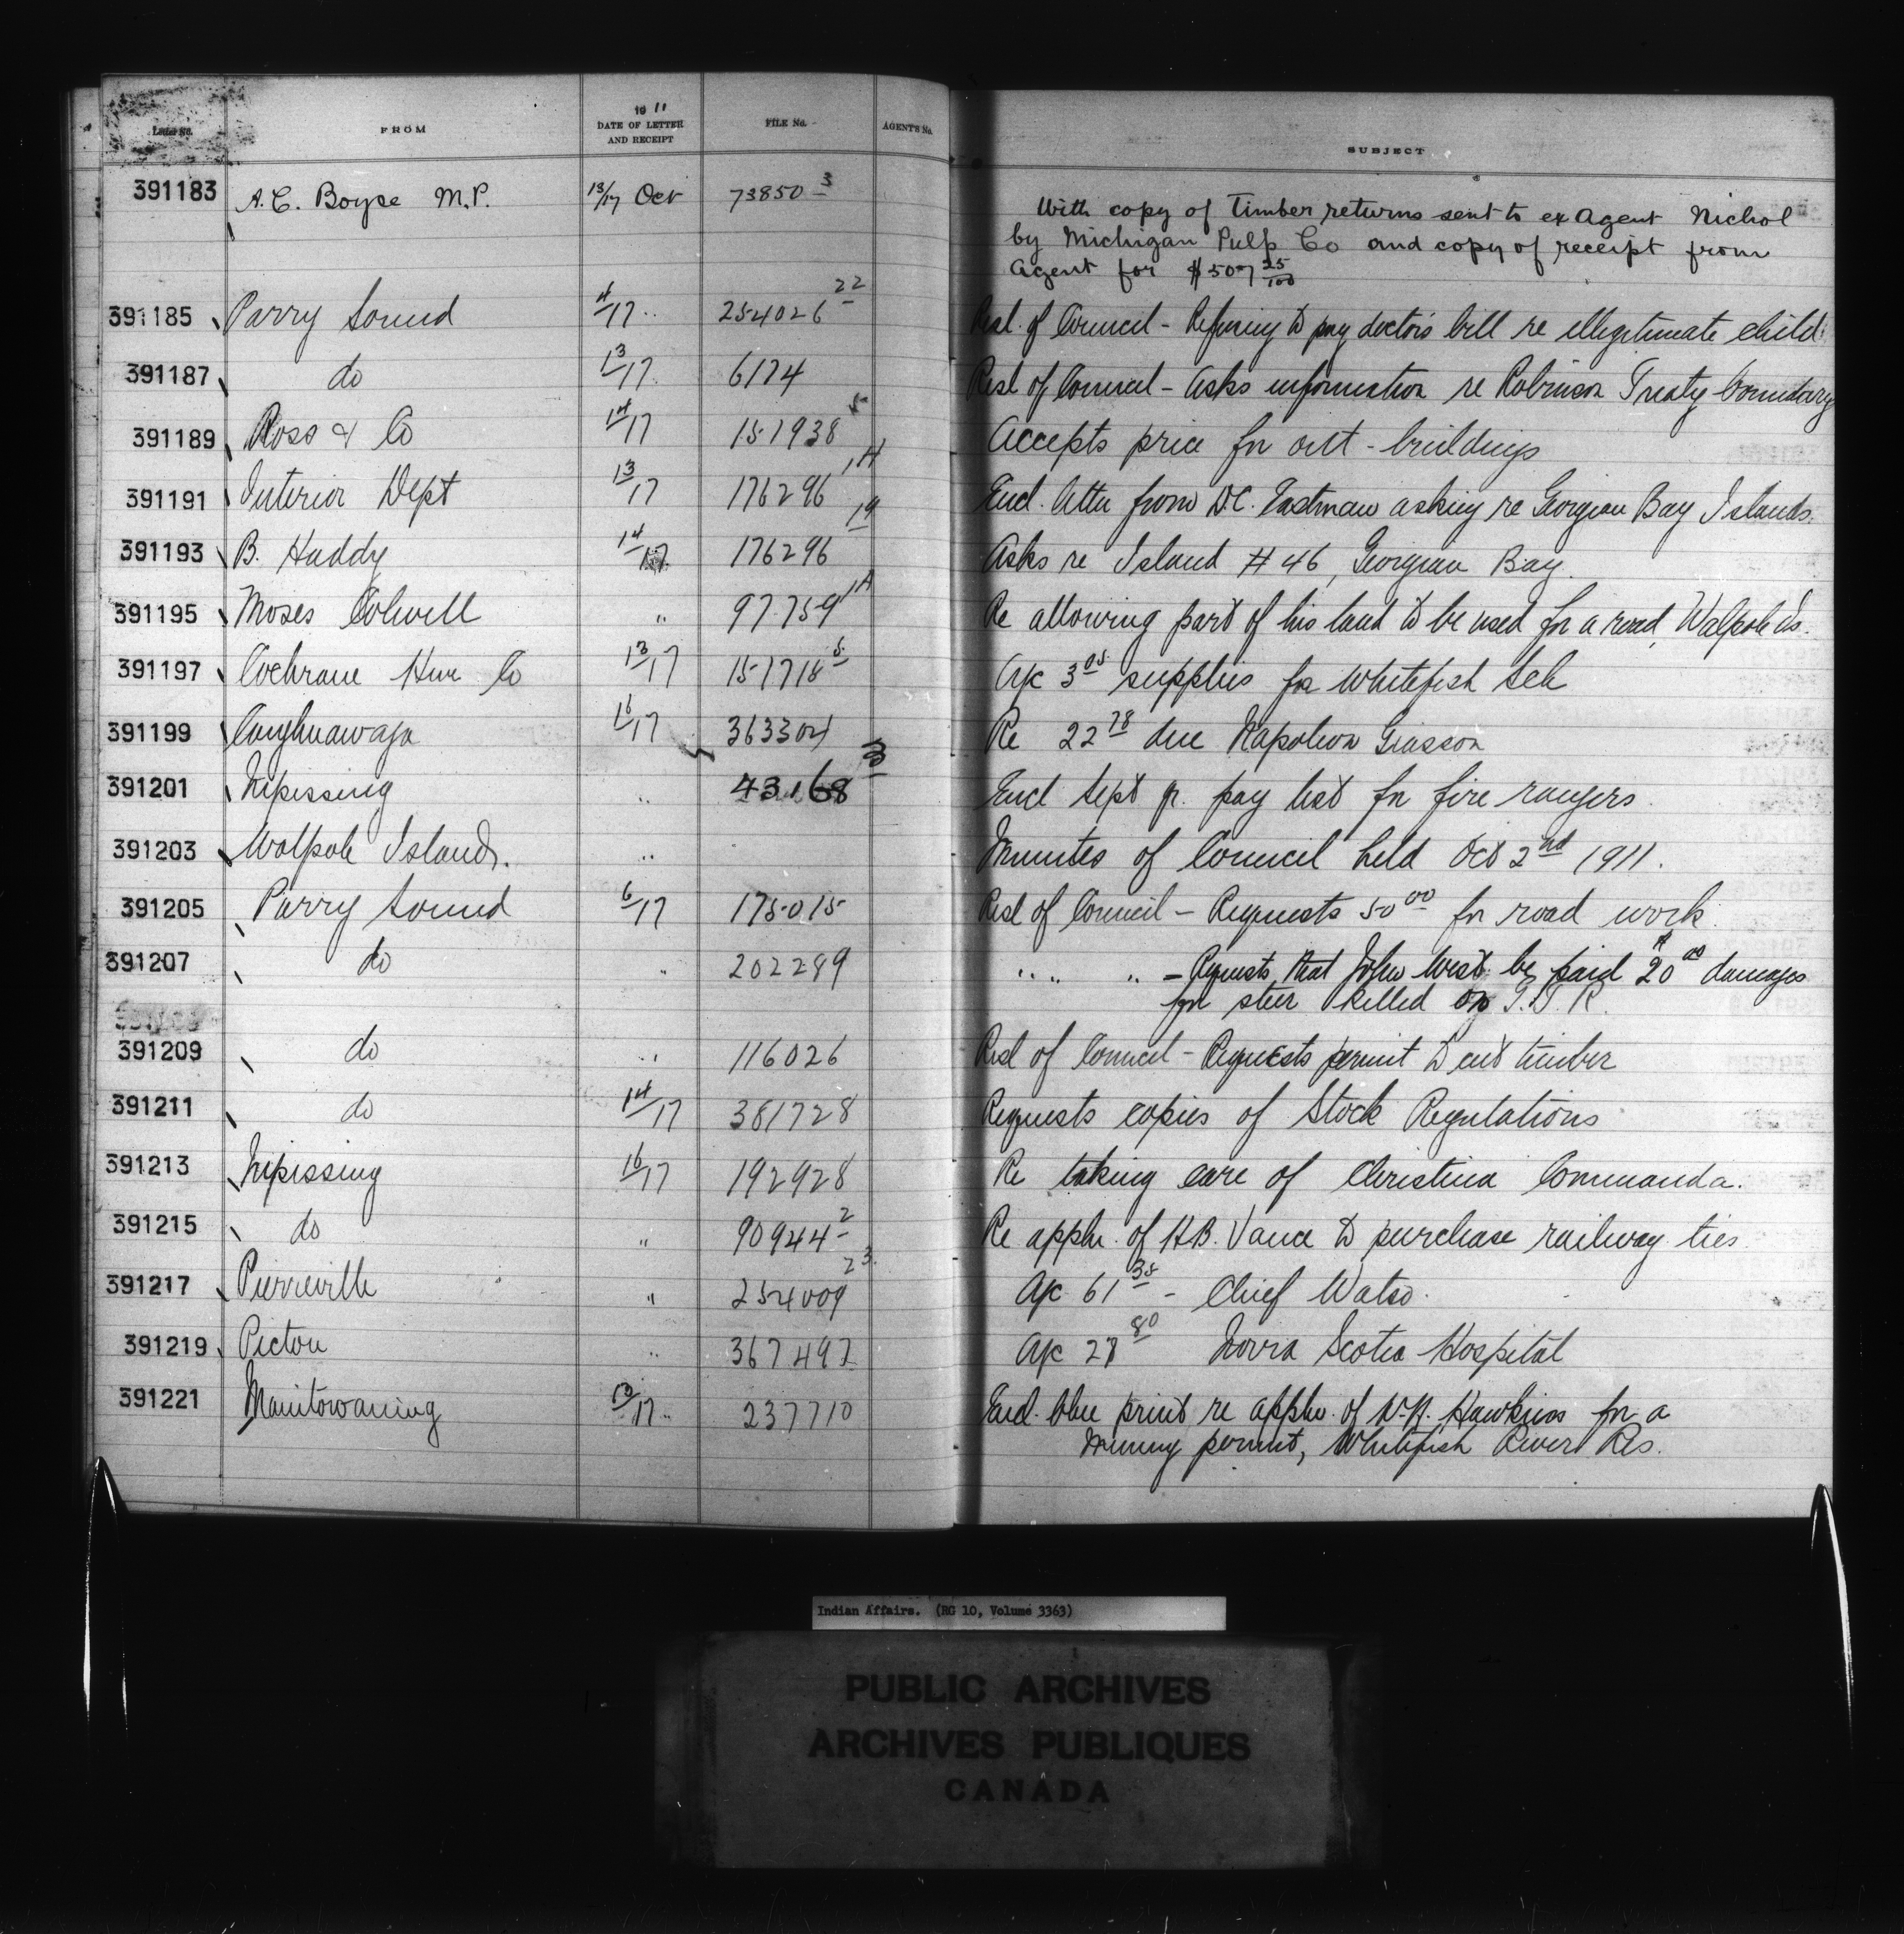 Letter No. FROM 1911 DATE OF LETTER AND RECEIPT FILE No. AGENT'S No. SUBJECT
391183 A. C. Boyce M.P. 13/17 Oct 73850-3 With copy of Timber returns sent to ex Agent Nichol
by Michigan Pulp Co and copy of receipt from
Agent for $507 25/100
391185 Parry Sound 4/17 " 254026 22 Resl. of Council - Refusing to pay doctor's bill re illegitimate child
391187 do 13/17 6174 Resl of Council - Asks information re Robinson Treaty boundary
391189 Ross & Co 14/17 151938 5 Accepts price for out-buildings
391191 Interior Dept 13/17 176296 1A Encl. letter from D.C. Eastman asking re Georgian Bay Islands.
391193 B. Haddy 14/17 176296 19 Asks re Island # 46, Georgian Bay.
391195 Moses Colwell " 97759 1A Re allowing part of his land to be used for a road, Walpole Is.
391197 Cochrane Hwe Co 13/17 151718 5 A/c 3 05 supplies for Whitefish Sch
391199 Caughnawaga 16/17 363304 Re 22 78 due Napoleon Giasson
391201 Nipissing " 43168 3 Encl Sept qr. pay list for fire rangers.
391203 Walpole Island. " Minutes of Council held Oct 2nd 1911.
391205 Parry Sound 6/17 175015 Resl of Council - Requests 50 00 for road work
391207 do " 202289 " " " - Requests that John West be paid $20 00 damages
for steer killed on G.T.R.
391209 do " 116026 Resl of Council - Requests permit to cut timber
391211 do 14/17 381728 Requests copies of Stock Regulations
391213 Nipissing 16/17 192928 Re taking care of Christina Commanda.
391215 do " 90944 2 Re appln. of H.B. Vance to purchase railway ties
391217 Pierreville " 254009 23 A/c 61 35 - Chief Watso.
391219 Pictou " 367497 A/c 27 80 Novia Scotia Hospital
391221 Manitowaning 13/17 " 237710 Encl. blue print re appln. of Hawkins for a
Mining permit, Whitefish River Res.
Indian Affairs. (RG 10, Volume 3363)
PUBLIC ARCHIVES
ARCHIVES PUBLIQUES
CANADA